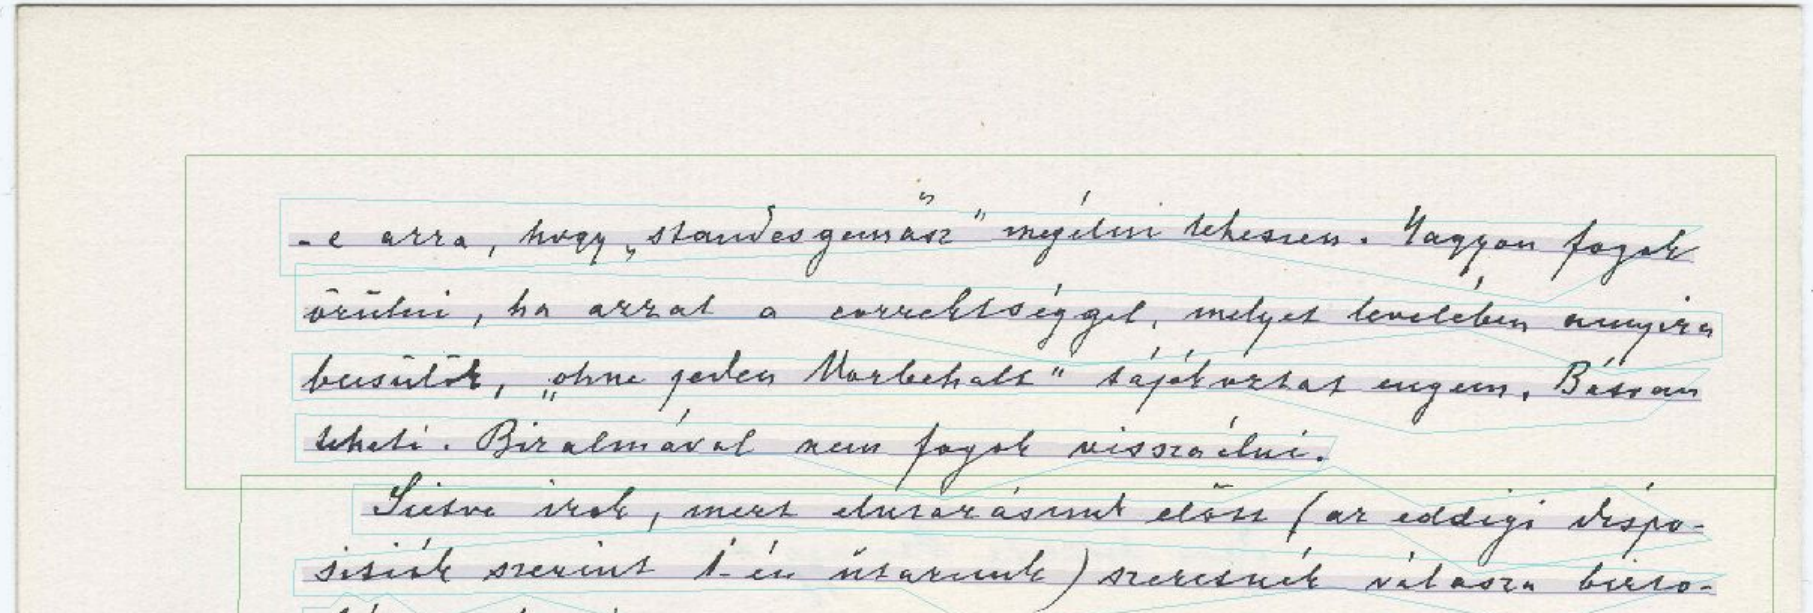 -e arra, hogy „standesgemäsz" megélni lehessen. Nagyon fogok
örülni, ha azzal a correktséggel, melyet levelében annyira
becsülök, „ohne jeden Vorbehalt" tájékoztat engem. Bátran
teheti. Bizalmával nem fogok visszaélni.
Sietve irok, mert elutazásunk előtt (az eddigi dispo-
sitiók szerint 1-én útazunk) szeretnék válasza birto-